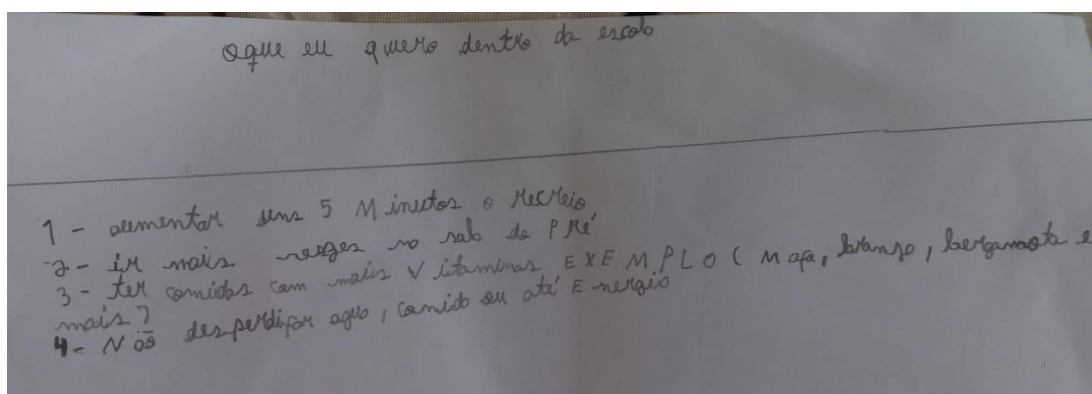 oque eu quero dentro da escola
1 - aumentar uns 5 Minutos o recreio
2 - ir mais vezes no sala do PRé
3 - ter comidas com mais Vitaminas EXEMPLO (Maça, laranja, bergamota e
mais)
4 - Não desperdiçar agua, comida ou até Energia